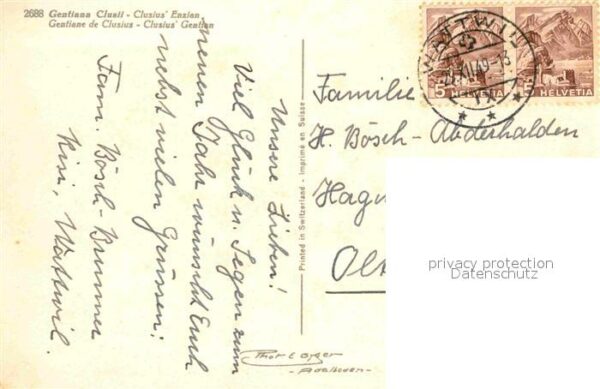 2688 Gentiana Clusii - Clusius' Enzian
Gentiane de Clusius - Clusius' Gentian
Unsere Lieben!
Viel Glück u. Segen zum
neuen Jahr wünscht Euch
nebst vielen Grüssen:
Fam. Bösch-Brunner
Risi, Wattwil.
Printed in Switzerland - Imprimé en Suisse
Phot E Gyger
- Adelboden -
WATTWIL
5 HELVETIA
5 HELVETIA
Familie
H. Bösch-Abderhalden
privacy protection
Datenschutz